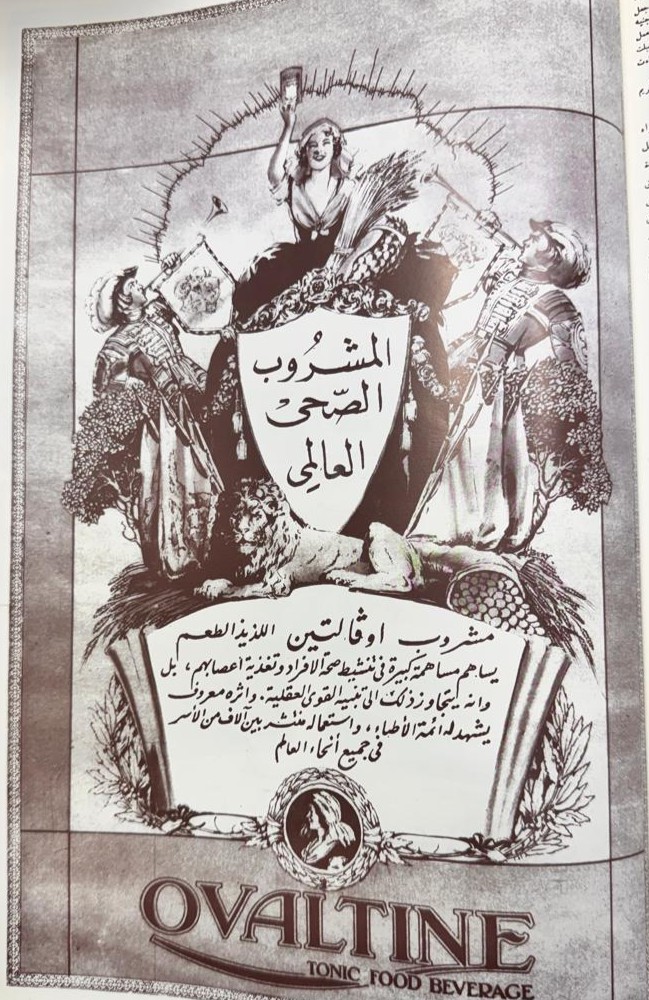 المشرُوب
الصّحىْ
العالِمى
مشروب اوڤالتين اللذيذ الطعم
يساهم مساهمة كبيرة فى تنشيط صحة الافراد وتغذية اعصابهم، بل
وانه يتجاوز ذلك الى تنبيه القوى العقلية. واثره معروف
يشهد له أئمة الأطباء، واستعماله منتشر بين آلاف من الأسر
فى جميع أنحاء العالم
OVALTINE
TONIC FOOD BEVERAGE